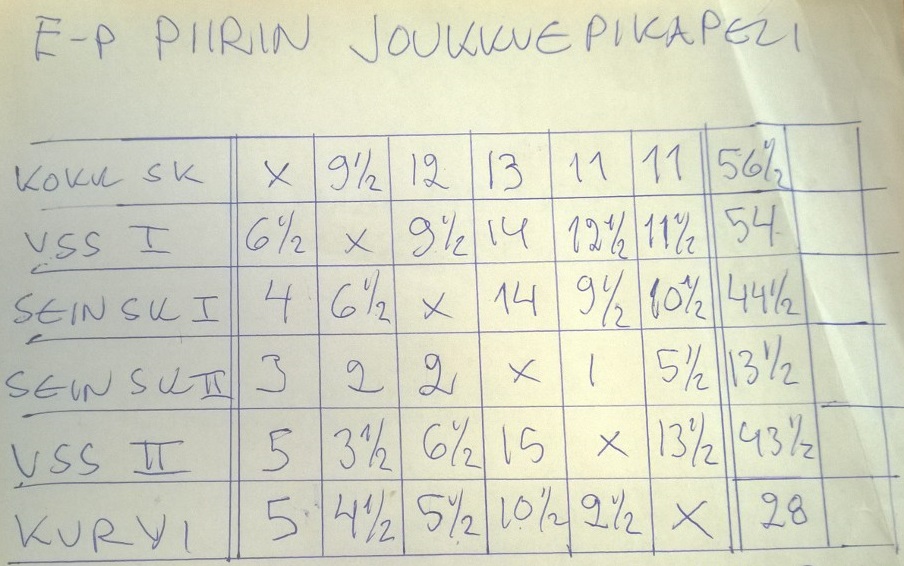 E-P PIIRIN JOUKKUEPIKAPELI
KOKK SK x 9½ 12 13 11 11 56½
VSS I 6½ x 9½ 14 12½ 11½ 54
SEIN SK I 4 6½ x 14 9½ 10½ 44½
SEIN SK II 3 2 2 x 1 5½ 13½
VSS II 5 3½ 6½ 15 x 13½ 43½
KURVI 5 4½ 5½ 10½ 2½ x 28